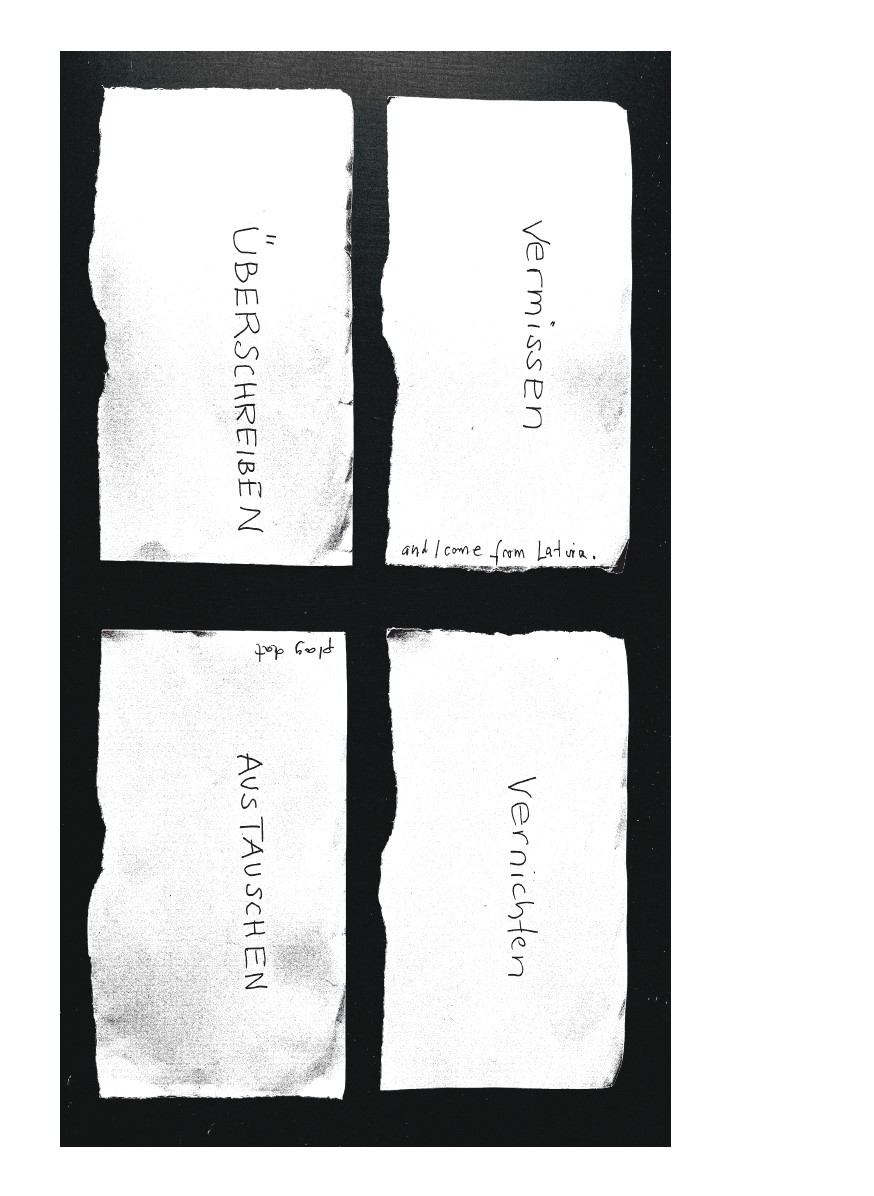 ÜBERSCHREIBEN
vermissen
and I come from Latvia.
play dat
AUSTAUSCHEN
vernichten